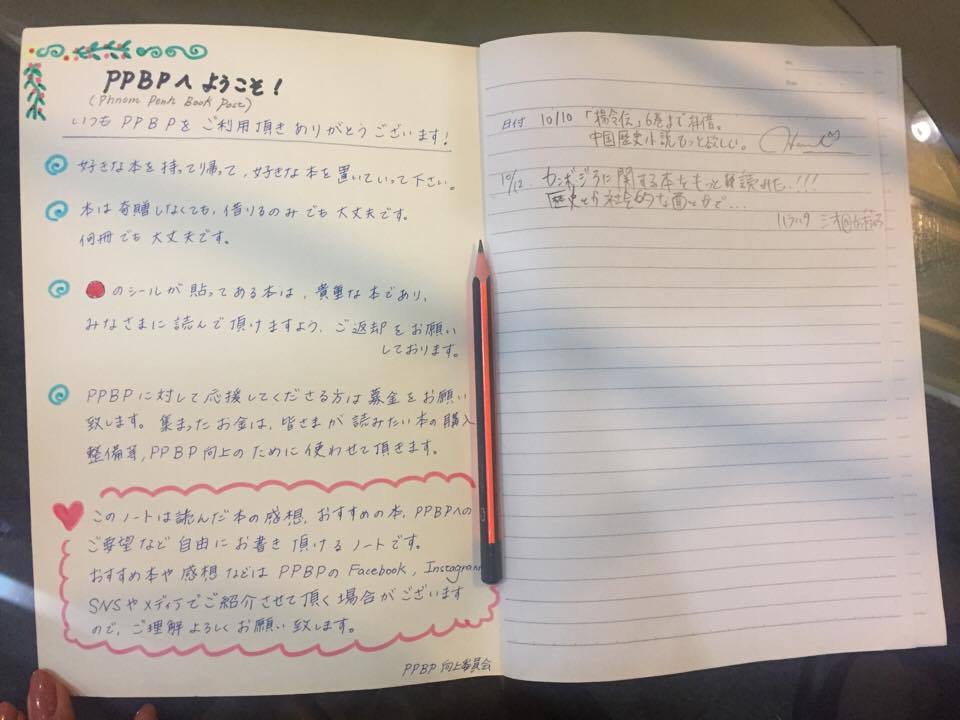 PPBPへようこそ！
(Phnom Penh Book Post)
いつもPPBPをご利用頂きありがとうございます！
好きな本を持って帰って、好きな本を置いていって下さい。
本は寄贈しなくても、借りるのみでも大丈夫です。
何冊でも大丈夫です。
のシールが貼ってある本は、貴重な本であり、
みなさまに読んで頂けますよう、ご返却をお願い
しております。
PPBPに対して応援してくださる方は募金をお願い
致します。集まったお金は、皆さまが読みたい本の購入
整備等、PPBP向上のために使わせて頂きます。
このノートは読んだ本の感想、おすすめの本、PPBPへの
ご要望など自由にお書き頂けるノートです。
おすすめ本や感想などはPPBPのFacebook、Instagram
SNSやメディアでご紹介させて頂く場合がございます
ので、ご理解よろしくお願い致します。
PPBP向上委員会
No.
Date
日付 10/10 「楊令伝」6巻まで拝借。
中国歴史小説もっと欲しい。
10/12. カンボジアに関する本をもっと読みたい!!!
歴史とか社会的な面とかで...